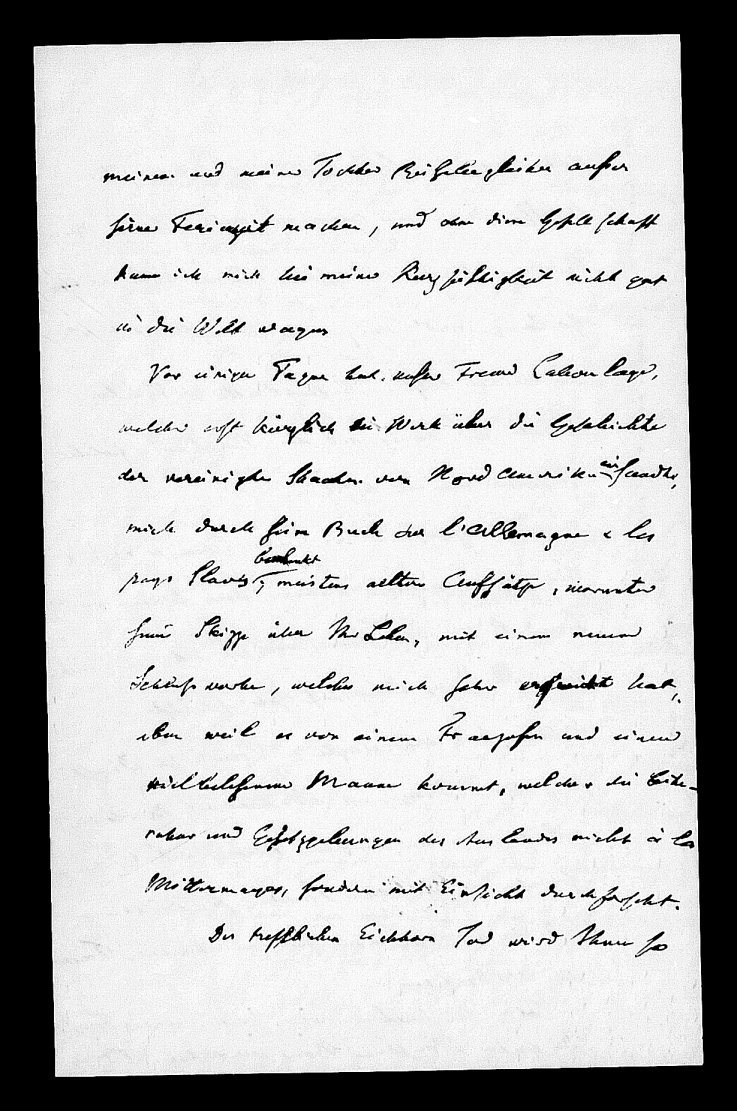 meinen und meiner Tochter Reisebegleiter außer
seiner Ferienzeit machen, und ohne diese Gesellschaft
kann ich mich bei meiner Kurzsichtigkeit nicht gut
in die Welt wagen
Vor einigen Tagen hat unser Freund Laboulaye,
welcher erst kürzlich sein Werk über die Geschichte
der vereinigten Staaten von Nord Amerika einsandte,
mich durch sein Buch sur l'Allemagne & les
pays Slaves, meistens ältere Aufsätze, worunter
seine Skizze über Ihr Leben, mit einem neuen
Schlußworte, welches mich sehr erfreut hat,
eben weil es von einem Franzosen und einem
vielbelesenen Manne kommt, welcher die Lite-
ratur und Gesetzgebungen des Auslandes nicht à la
Mittermayer, sondern mit Einsicht durchforscht.
Des trefflichen Eichhorn Tod wird Ihnen so